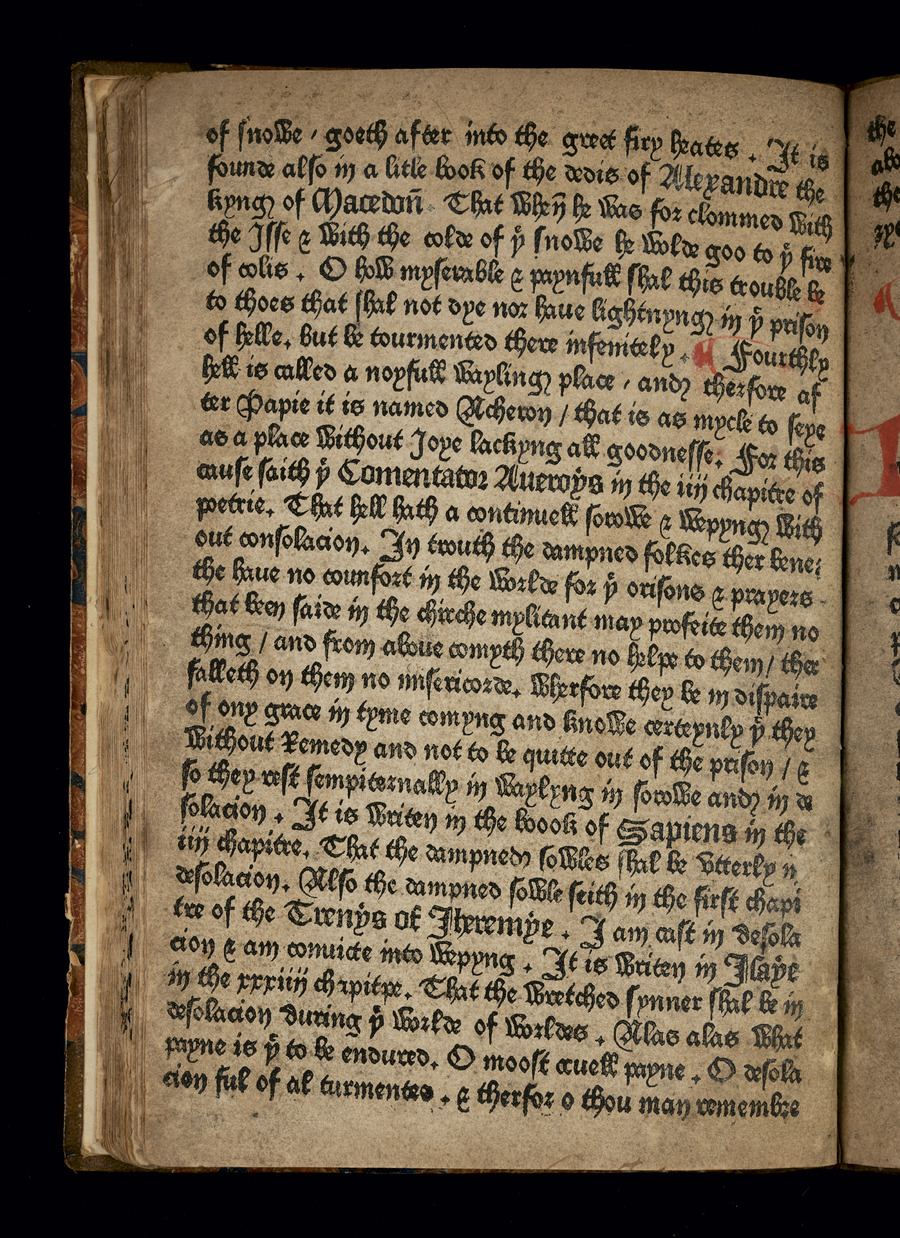 of snowe / goeth after into the greet firy heates . It is
founde also in a litle book of the dedis of Alexandre the
kyng of Macedon̄ . That when̄ he was for clommed with
the Isse & with the colde of yͤ snowe he wolde goo to yͤ fire
of colis . O how myserable & paynfull shal this trouble be
to thoes that shal not dye nor haue lightnyng in yͤ prison
of helle. but be tourmented there infenitely . ¶ Fourthly
hell is called a noyfull wayling place / and therfore af
ter Papie it is named Acheron / that is as mycle to seye
as a place without Joye lackyng all goodnesse. For this
cause saith yͤ Comentator Aueroys in the iiij chapitre of
poetrie. That hell hath a continuell sorowe & wepyng with
out consolacion. In trouth the dampned folkes ther bene:
the haue no counfort in the worlde for yͤ orisons & prayers
that been saide in the chirche mylitant may profeite them no
thing / and from aboue comyth there no helpe to them / ther
falleth on them no misericorde. wherfore they be in dispaire
of ony grace in tyme comyng and knowe certeynly yͭ they
without Remedy and not to be quitte out of the prison / &
so they rest sempiternally in waylyng in sorowe and in de
solacion . It is writen in the boook of Sapiens in the
iiij chapitre. That the dampned sowles shal be vtterly n
desolacion. Also the dampned sowle seith in the first chapi
tre of the Trenys of Iheremye . I am cast in desola
cion & am convicte into wepyng . It is writen in Isaye
in the xxxiiij chapitpe. That the wretched synner shal be in
desolacion during yͤ worlde of worldes . Alas alas what
payne is yͭ to be endured. O moost cruell payne . O desola
cion ful of al turmentes . & therfor o thou man remembre
the
the